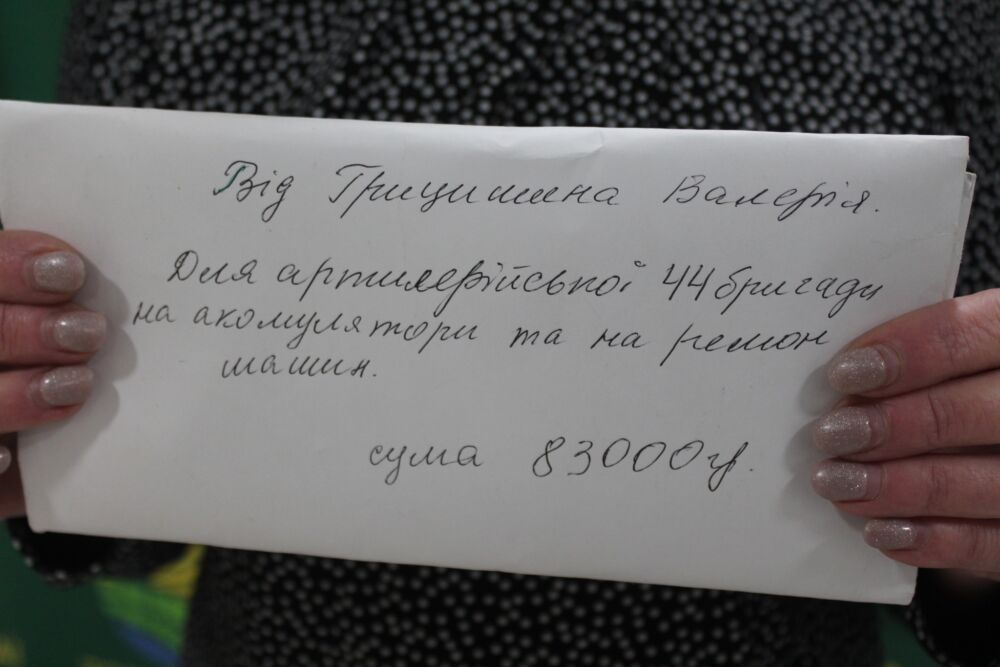 Від Грицишена Валерія.
Для артилерійської 44 бригади
на акомулятори та на ремон
машин.
сума 83000гр.